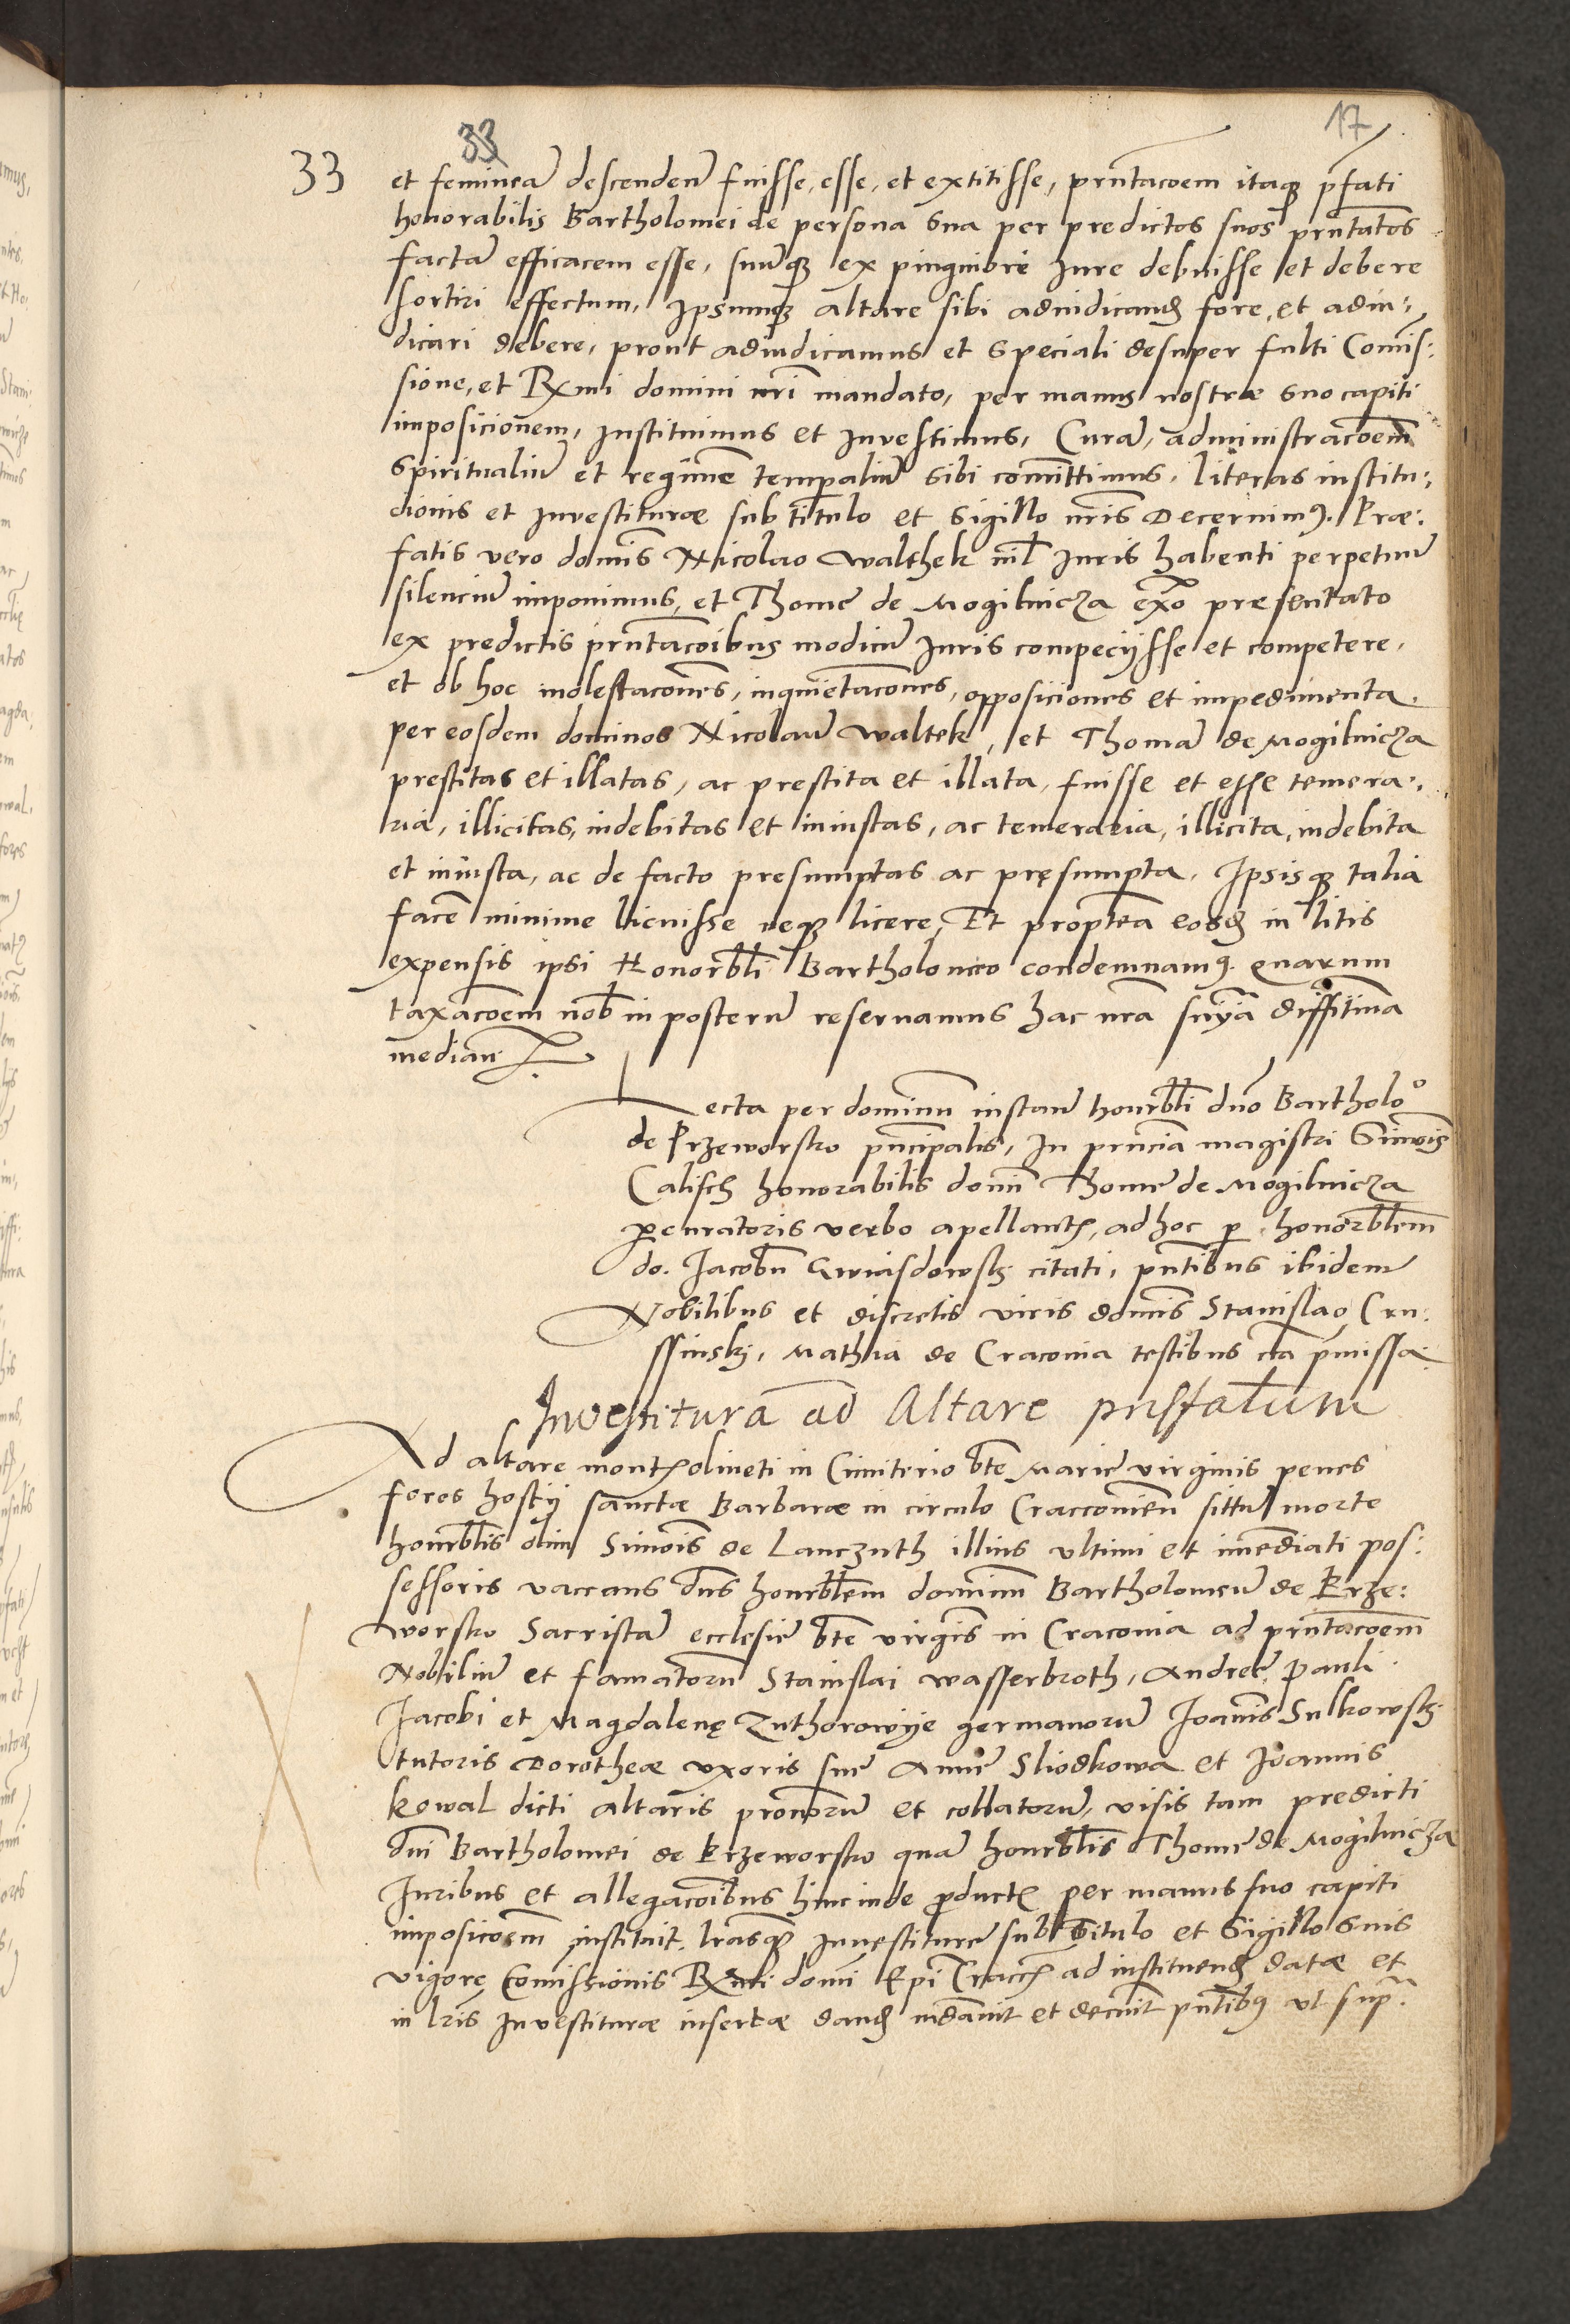 33 17
33 et femineā descendeñ fuisse, esse, et extitisse, pñtacoem itaqȝ p̄fati
honorabilis Bartholomei de persona sua per predictos suos pñtatos
factā efficacem esse, suūqȝ ex pinguiore Jure debuisse et debere
sortiri effectum, Ipsumqȝ altare sibi adiudicanđ fore, et adiu:
dicari debere, prout adiudicamus et speciali desuper fulti Comis:
sione, et Rx̄mi domini nr̄i mandato, per manus nostræ suo capiti
imposicionem, Instituimus et Investimus, Curā, administracoem
Spiritualiū et regimē temp̄aliū sibi comittimus, literas institu:
cionis et Investituræ sub titulo et Sigillo nr̄is Decernimꝰ. Præ:
fatis vero dominis Nicolao Walthek nil Juris habenti perpetuū
silenciū imponimus, et Thome de Mogilnicza ex̄o presentato
ex predictis pñtacoibus modicū Juris competijsse et competere,
et ob hoc molestacoēs, inquietacoēs, opposiciones et impedimenta
per eosdem dominos Nicolaū Waltek, et Thomā de Mogilnicza
prestitas et illatas, ac prestita et illata, fuisse et esse temera:
rias, illicitas, indebitas et iniustas, ac temeraria, illicita, indebita
et iniusta, ac de facto presumptas ac pręsumpta, Ipsisqȝ talia
facē minime licuisse neqȝ licere, Et propterea eosđ in litis
expensis ipsi Honorbli Bartholomeo condemnamꝰ. quarum
taxacoem nob̄ in posterū reseruamus hac nr̄a sñīa diffitiua
median̄
Lecta per dominū instan̄ honrbli dno Bartholo°
de Przeworsko pn̄cipalis, In pn̄cia magistri Simois
Calisch honorabilis domī Thome de Mogilnicza
p̄curatoris verbo apellantꝭ, ad hoc p honorblem
do. Jacobū Gwiasdowskj citati, pñtibus ibidem
Nobilibus et discretis viris dominis Stanislao Cru:
ssinskj, Mathia de Craconia testibus cr̄a p̄missa
Investitura ad Altare prefatum
Ad altare montꝭ oliueti in Cimiterio bt̄e Marie virginis penes
fores hostij sanctæ Barbaræ in circulo Craccouien̄ sittū morte
honrblis olim Simois de Lanczuth illius vltimi et imediati pos:
sessoris vaccans dn̄s honrblem dominū Bartholomeū de Prze:
worsko Sacristā ecclesie bt̄e virginis in Craconia ad pñtacoem
Nobiliū et famatorū Stanislai Wasserbroth, Andree, Pauli
Jacobi et Magdalenę Zuthorowye germanorū Joānis Sulkowskj
tutoris Dorotheæ vxoris sue Anne Sliodkowa et Joannis
Kowal dicti altaris pronorū et collatorū, visis tam predicti
dn̄i Bartholomei de Przeworsko quā honrblis Thome de Mogilnicza
Juribus et allegacoibus hincinde p̄ductꝭ per manus suo capiti
imposicoem instituit, lr̄asqȝ Investiture sub titulo et Sigillo suis
vigorę Comissionis Rx̄mi domī Epī Craccꝭ ad instituenđ datæ et
in lr̄is Investituræ insertæ danđ mdauit et decreuit pñtibꝰ vt sup̄.